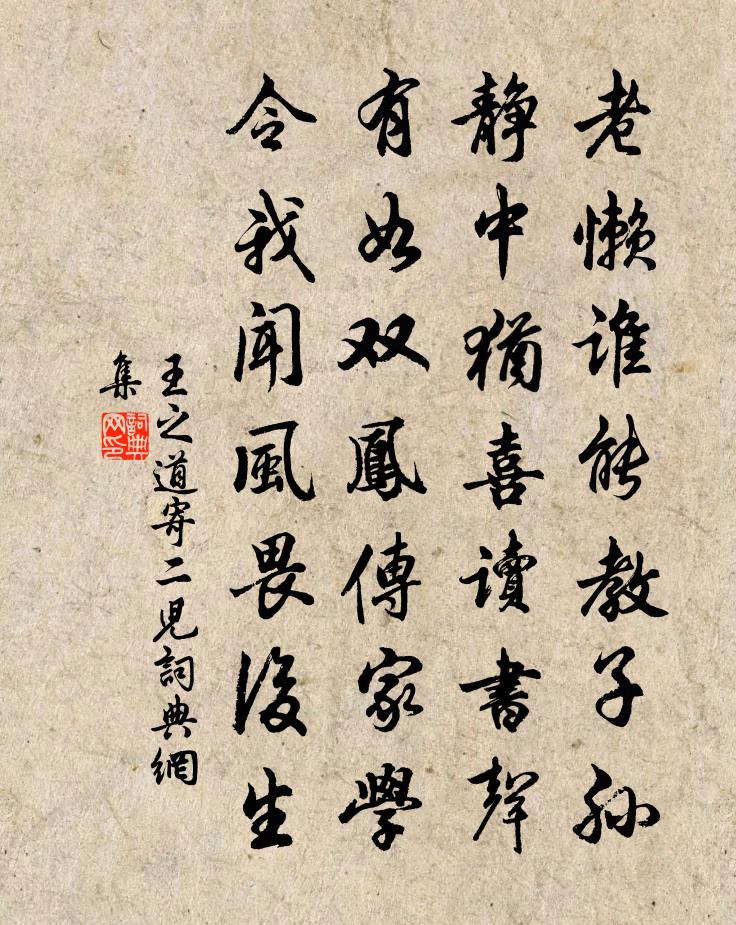 老懒谁能教子孙
静中猶喜讀書聲
有如双鳳傳家學
令我闻風畏後生
王之道寄二児詞典網
集
詞典
网印